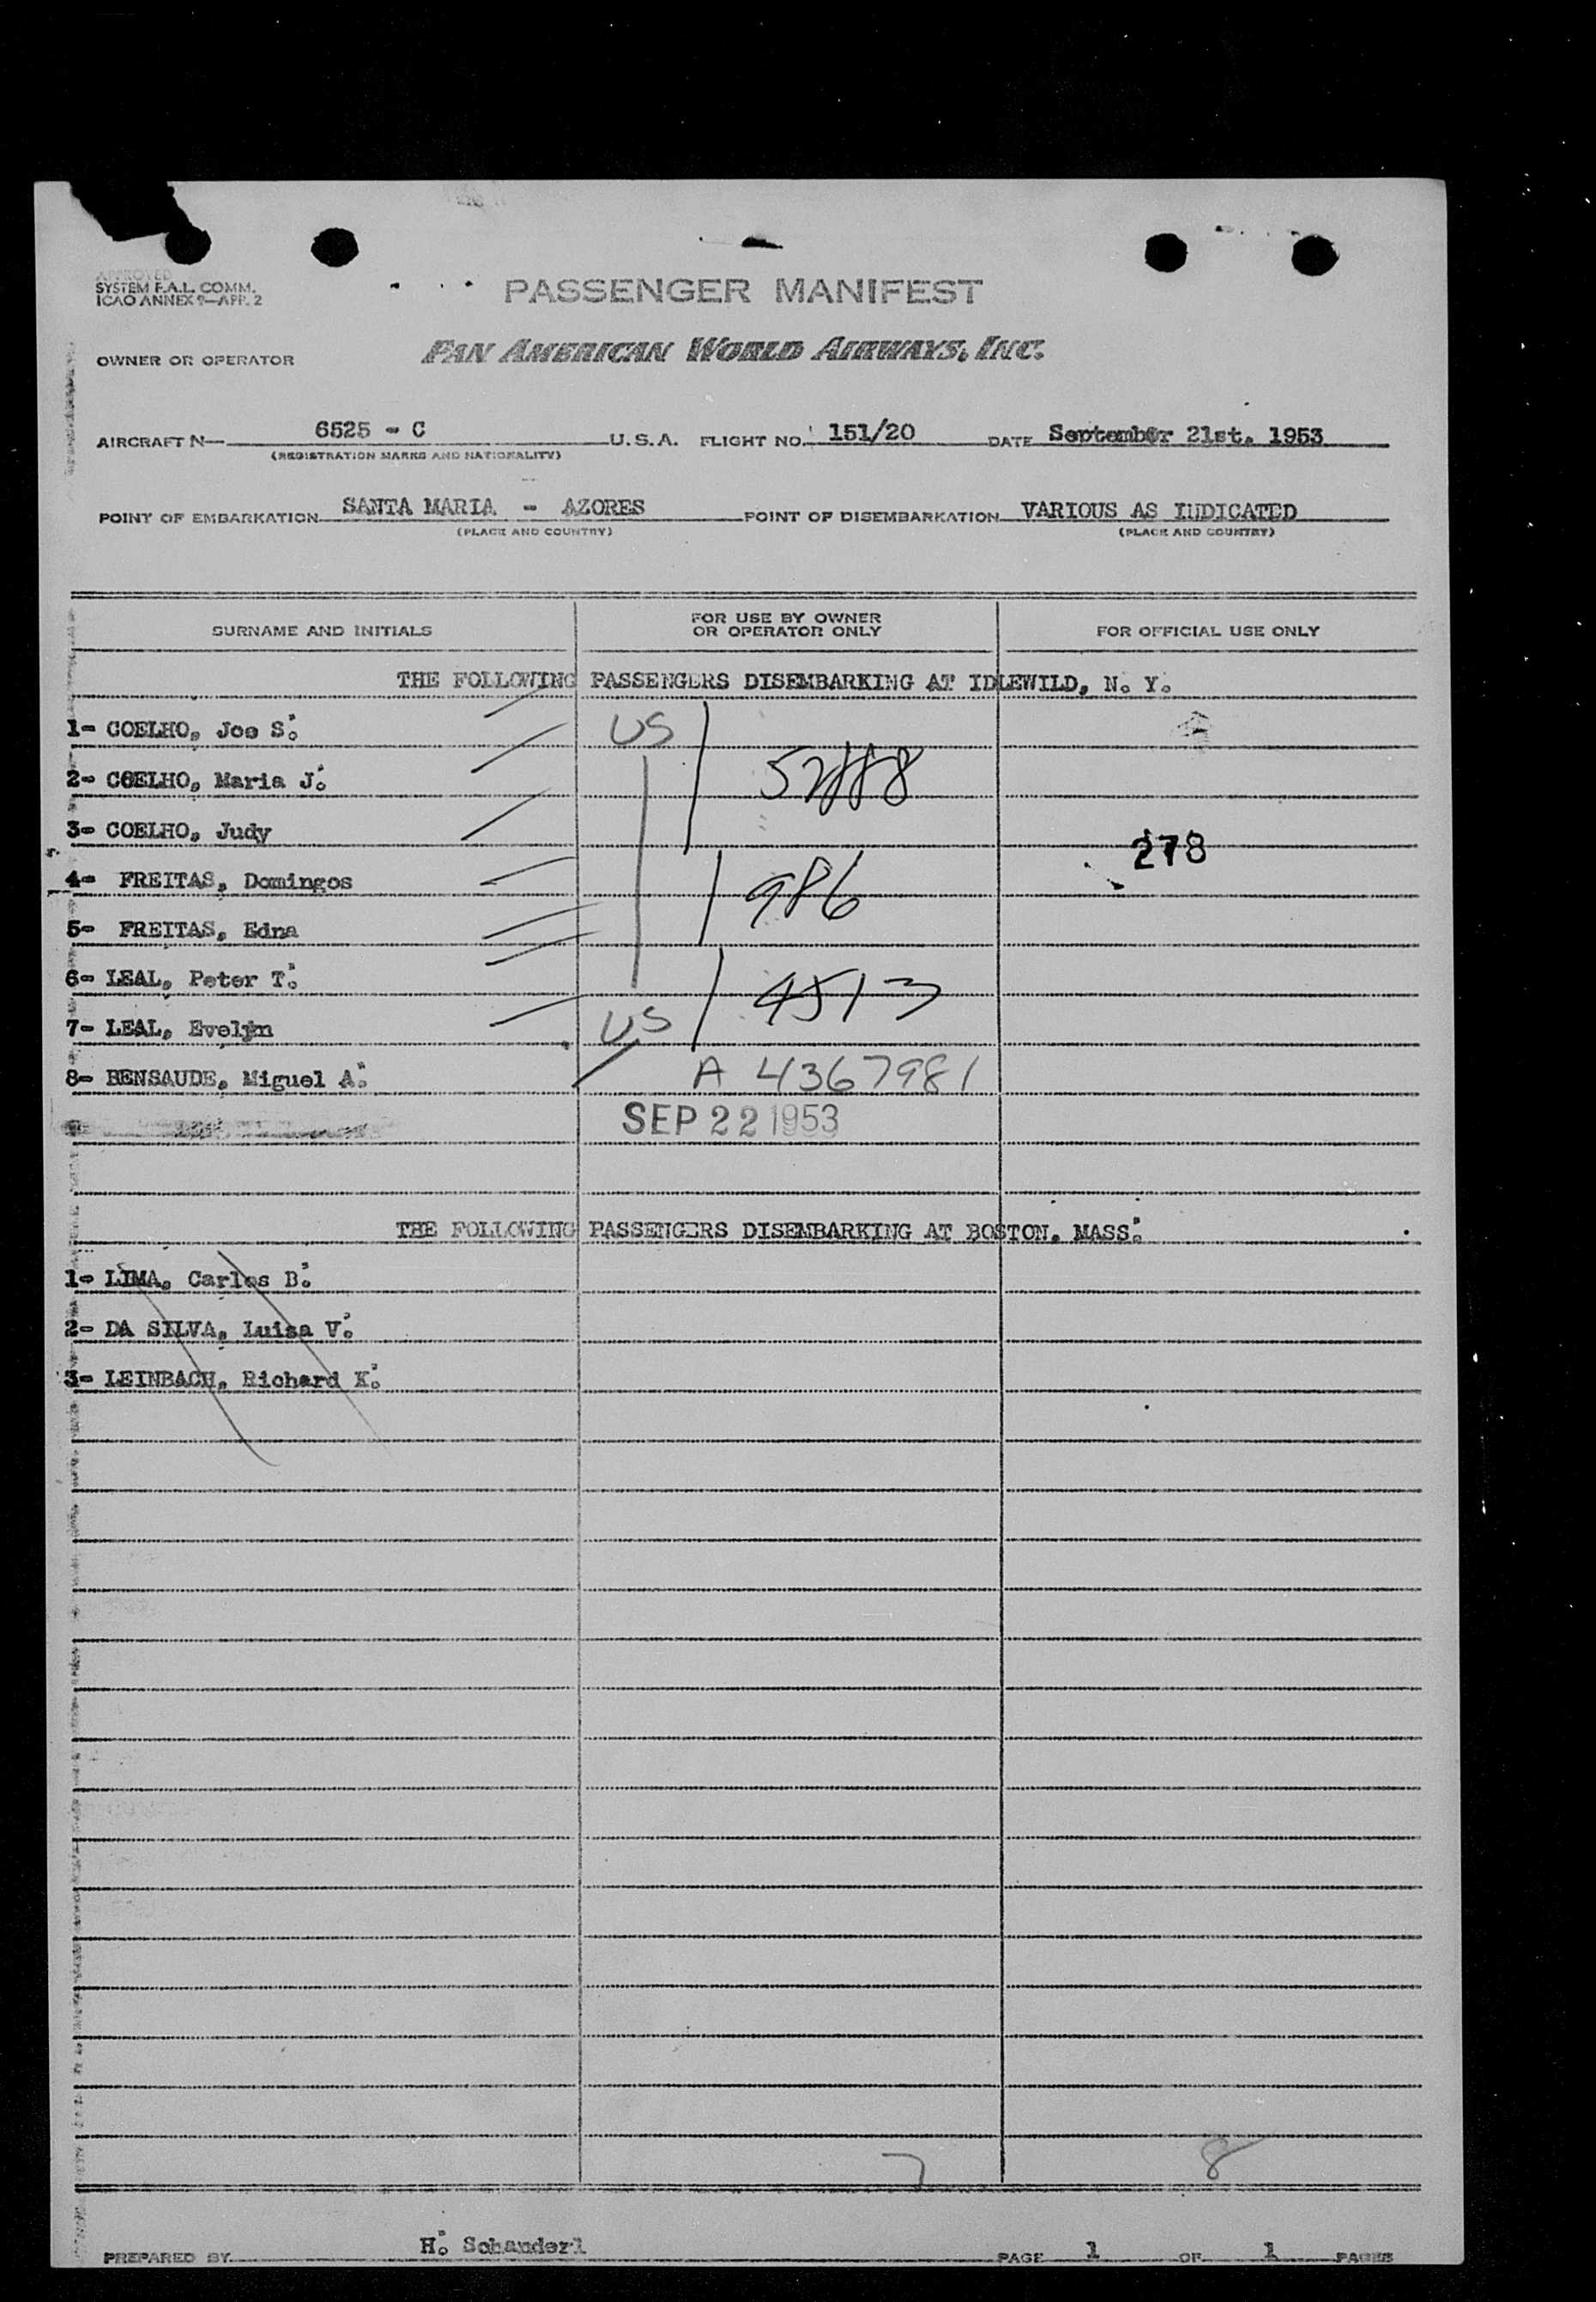 APPROVED
SYSTEM F.A.L. COMM.
ICAO ANNEX 9—APP. 2
PASSENGER MANIFEST
OWNER OR OPERATOR PAN AMERICAN WORLD AIRWAYS, INC.
AIRCRAFT N— 6525 - C U.S.A. FLIGHT NO. 151/20 DATE September 21st. 1953
(REGISTRATION MARKS AND NATIONALITY)
POINT OF EMBARKATION SANTA MARIA - AZORES POINT OF DISEMBARKATION VARIOUS AS INDICATED
(PLACE AND COUNTRY) (PLACE AND COUNTRY)
SURNAME AND INITIALS FOR USE BY OWNER OR OPERATOR ONLY FOR OFFICIAL USE ONLY
THE FOLLOWING PASSENGERS DISEMBARKING AT IDLEWILD, N. Y.
1- COELHO, Joe S. US
2- COELHO, Maria J.
3- COELHO, Judy
278
4- FREITAS, Domingos 986
5- FREITAS, Edna
6- LEAL, Peter T. 4513
7- LEAL, Evelyn US
8- BENSAUDE, Miguel A. A 4367981
SEP 22 1953
THE FOLLOWING PASSENGERS DISEMBARKING AT BOSTON. MASS.
1- LIMA, Carlos B.
2- DA SILVA, Luisa V.
3- LEINBACH, Richard K.
7 8
PREPARED BY H. Schanderl PAGE 1 OF 1 PAGES